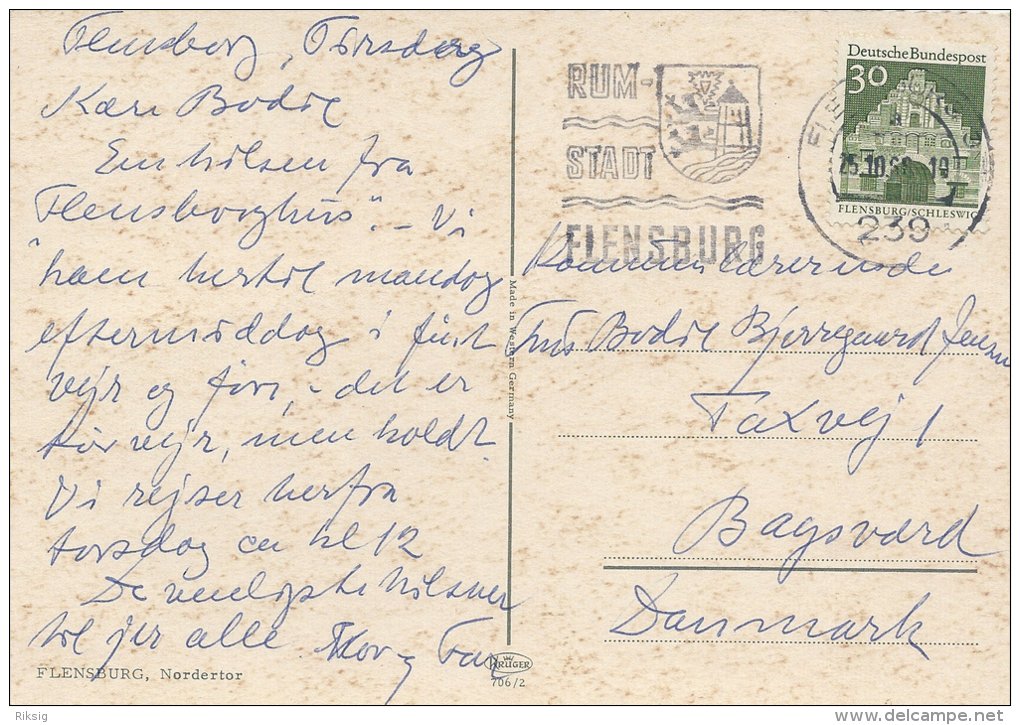 Flensborg, Torsdag
Kære Bodil
Em hilsen fra
"Flensborghus". – Vi
kom hertil mandag
eftermiddag i fint
vejr og føre, – det er
tør vejr, men koldt.
Vi rejser herfra
torsdag ca kl 12
De venligste hilsner
til jer alle. Mor og Far
FLENSBURG, Nordertor
Made in Western Germany
KRÜGER
706/2
RUM-
STADT
FLENSBURG
Deutsche Bundespost
30
FLENSBURG/SCHLESWIG
25.10.68-19
239
Kommunelærerinde
Fru Bodil Bjerregaard Jensen
Taxvej 1
Bagsværd
Danmark
Riksig